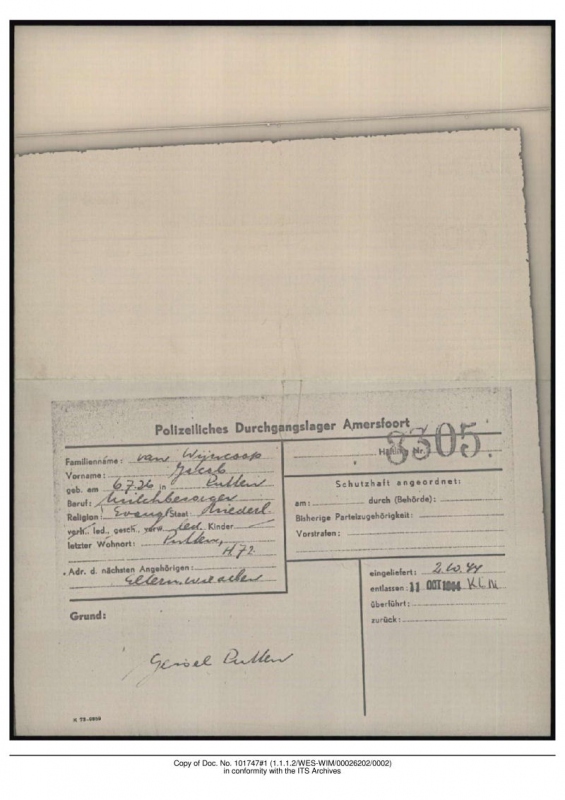 Polizeiliches Durchgangslager Amersfoort
Häftling Nr. 3305
Familienname: van Wijncoop
Vorname: Jakob
geb. am 6.7.26 in Putten
Beruf:
Religion: Evang. Staat: Niederl.
verh., led., gesch., verw. led. Kinder
letzter Wohnort: Putten,
H 72
Adr. d. nächsten Angehörigen:
Eltern
Schutzhaft angeordnet:
am: durch (Behörde):
Bisherige Parteizugehörigkeit:
Vorstrafen:
eingeliefert: 2.10.44
entlassen: 11 OCT 1944 KLN
überführt:
zurück:
Grund:
Geisel Putten
Copy of Doc. No. 101747#1 (1.1.1.2/WES-WIM/00026202/0002)
in conformity with the ITS Archives